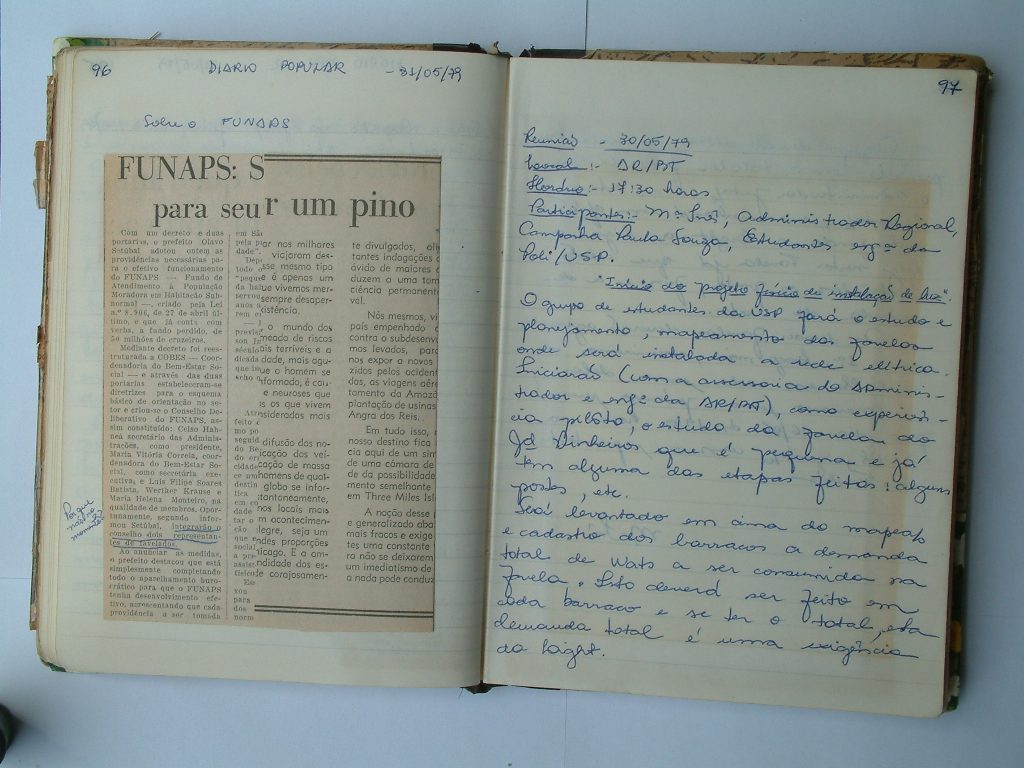 96 DIARIO POPULAR - 31/05/79
Sobre o FUNAPS
FUNAPS: S
para seu
r um pino
Com um decreto e duas
portarias, o prefeito Olavo
Setúbal adotou ontem as
providências necessárias pa-
ra o efetivo funcionamento
do FUNAPS — Fundo de
Atendimento à População
Moradora em Habitação Sub-
normal —, criado pela Lei
n.º 8.906, de 27 de abril úl-
timo, e que já conta com
verba, a fundo perdido, de
50 milhões de cruzeiros.
Mediante decreto foi rees-
truturada a COBES — Coor-
denadoria do Bem-Estar So-
cial — e através das duas
portarias estabeleceram-se
diretrizes para o esquema
básico de orientação no se-
tor e criou-se o Conselho De-
liberativo do FUNAPS, as-
sim constituído: Celso Hah-
ne, secretário das Adminis-
trações, como presidente,
Maria Vitória Correia, coor-
denadora do Bem-Estar So-
cial, como secretária exe-
cutiva, e Luís Filipe Soares
Batista, Werther Krause e
Maria Helena Monteiro, na
qualidade de membros. Opor-
tunamente, segundo infor-
mou Setúbal, integrarão o
conselho dois representan-
tes de favelados.
Ao anunciar as medidas,
o prefeito destacou que está
simplesmente completando
todo o aparelhamento buro-
crático para que o FUNAPS
tenha desenvolvimento efe-
tivo, acrescentando que cada
providência a ser tomada
Por que
não no
momento?
ar nos milhares
viajaram des-
sse mesmo tipo
e é apenas um
ue vivemos mer-
sempre desaper-
istência.
o mundo dos
meado de riscos
ais terríveis e a
dade, mais agu-
ue o homem se
formado, é cau-
e neuroses que
os os que vivem
nsiderados mais
difusão das no-
icação dos veí-
cação de massa
homens de quot-
globo se infor-
tantaneamente,
nos locais mais
m acontecimen-
legre, seja um
ndes proporções
icago. E a am-
ndidade dos es-
e corajosamen-
te divulgados, ali
tantes indagações
ávido de maiores c
duzem a uma tom
ciência permanent
vel.
Nós mesmos, vi
país empenhado c
contra o subdesenv
mos levados, para
nos expor a novos
zidos pelos aciden
das, as viagens aére
tamento da Amazô
plantação de usinas
Angra dos Reis.
Em tudo isso,
nosso destino fica
cia aqui de um sim
de uma câmara de
de da possibilidade
mento semelhante
em Three Miles Isl
A noção desse
e generalizado aba
mais fracos e exige
tes uma constante
ra não se deixarem
um imediatismo de
a nada pode conduz
97
Reunião - 30/05/79
Local:- AR/BT
Horário:- 17:30 horas
Participantes:- Mª Inês, Administrador Regional,
Campanha Paula Souza, Estudantes engª da
Poli/USP.
"Início do projeto físico de instalação de luz".
O grupo de estudantes da USP fará o estudo e
planejamento, mapeamento das favelas
onde será instalada a rede elétrica.
Iniciarão (com a assessoria do Adminis-
trador e engª da AR/BT), como experiên-
cia pilôto, o estudo da favela do
Jd Pinheiros que é pequena e já
tem alguma das etapas feitas: alguns
posts, etc.
Será levantado em cima do mapea/o
e cadastro dos barracos a demanda
total de Wats a ser consumida na
favela. Isto deverá ser feito em
cada barraco e se ter o total, esta
demanda total é uma exigência
da Light.